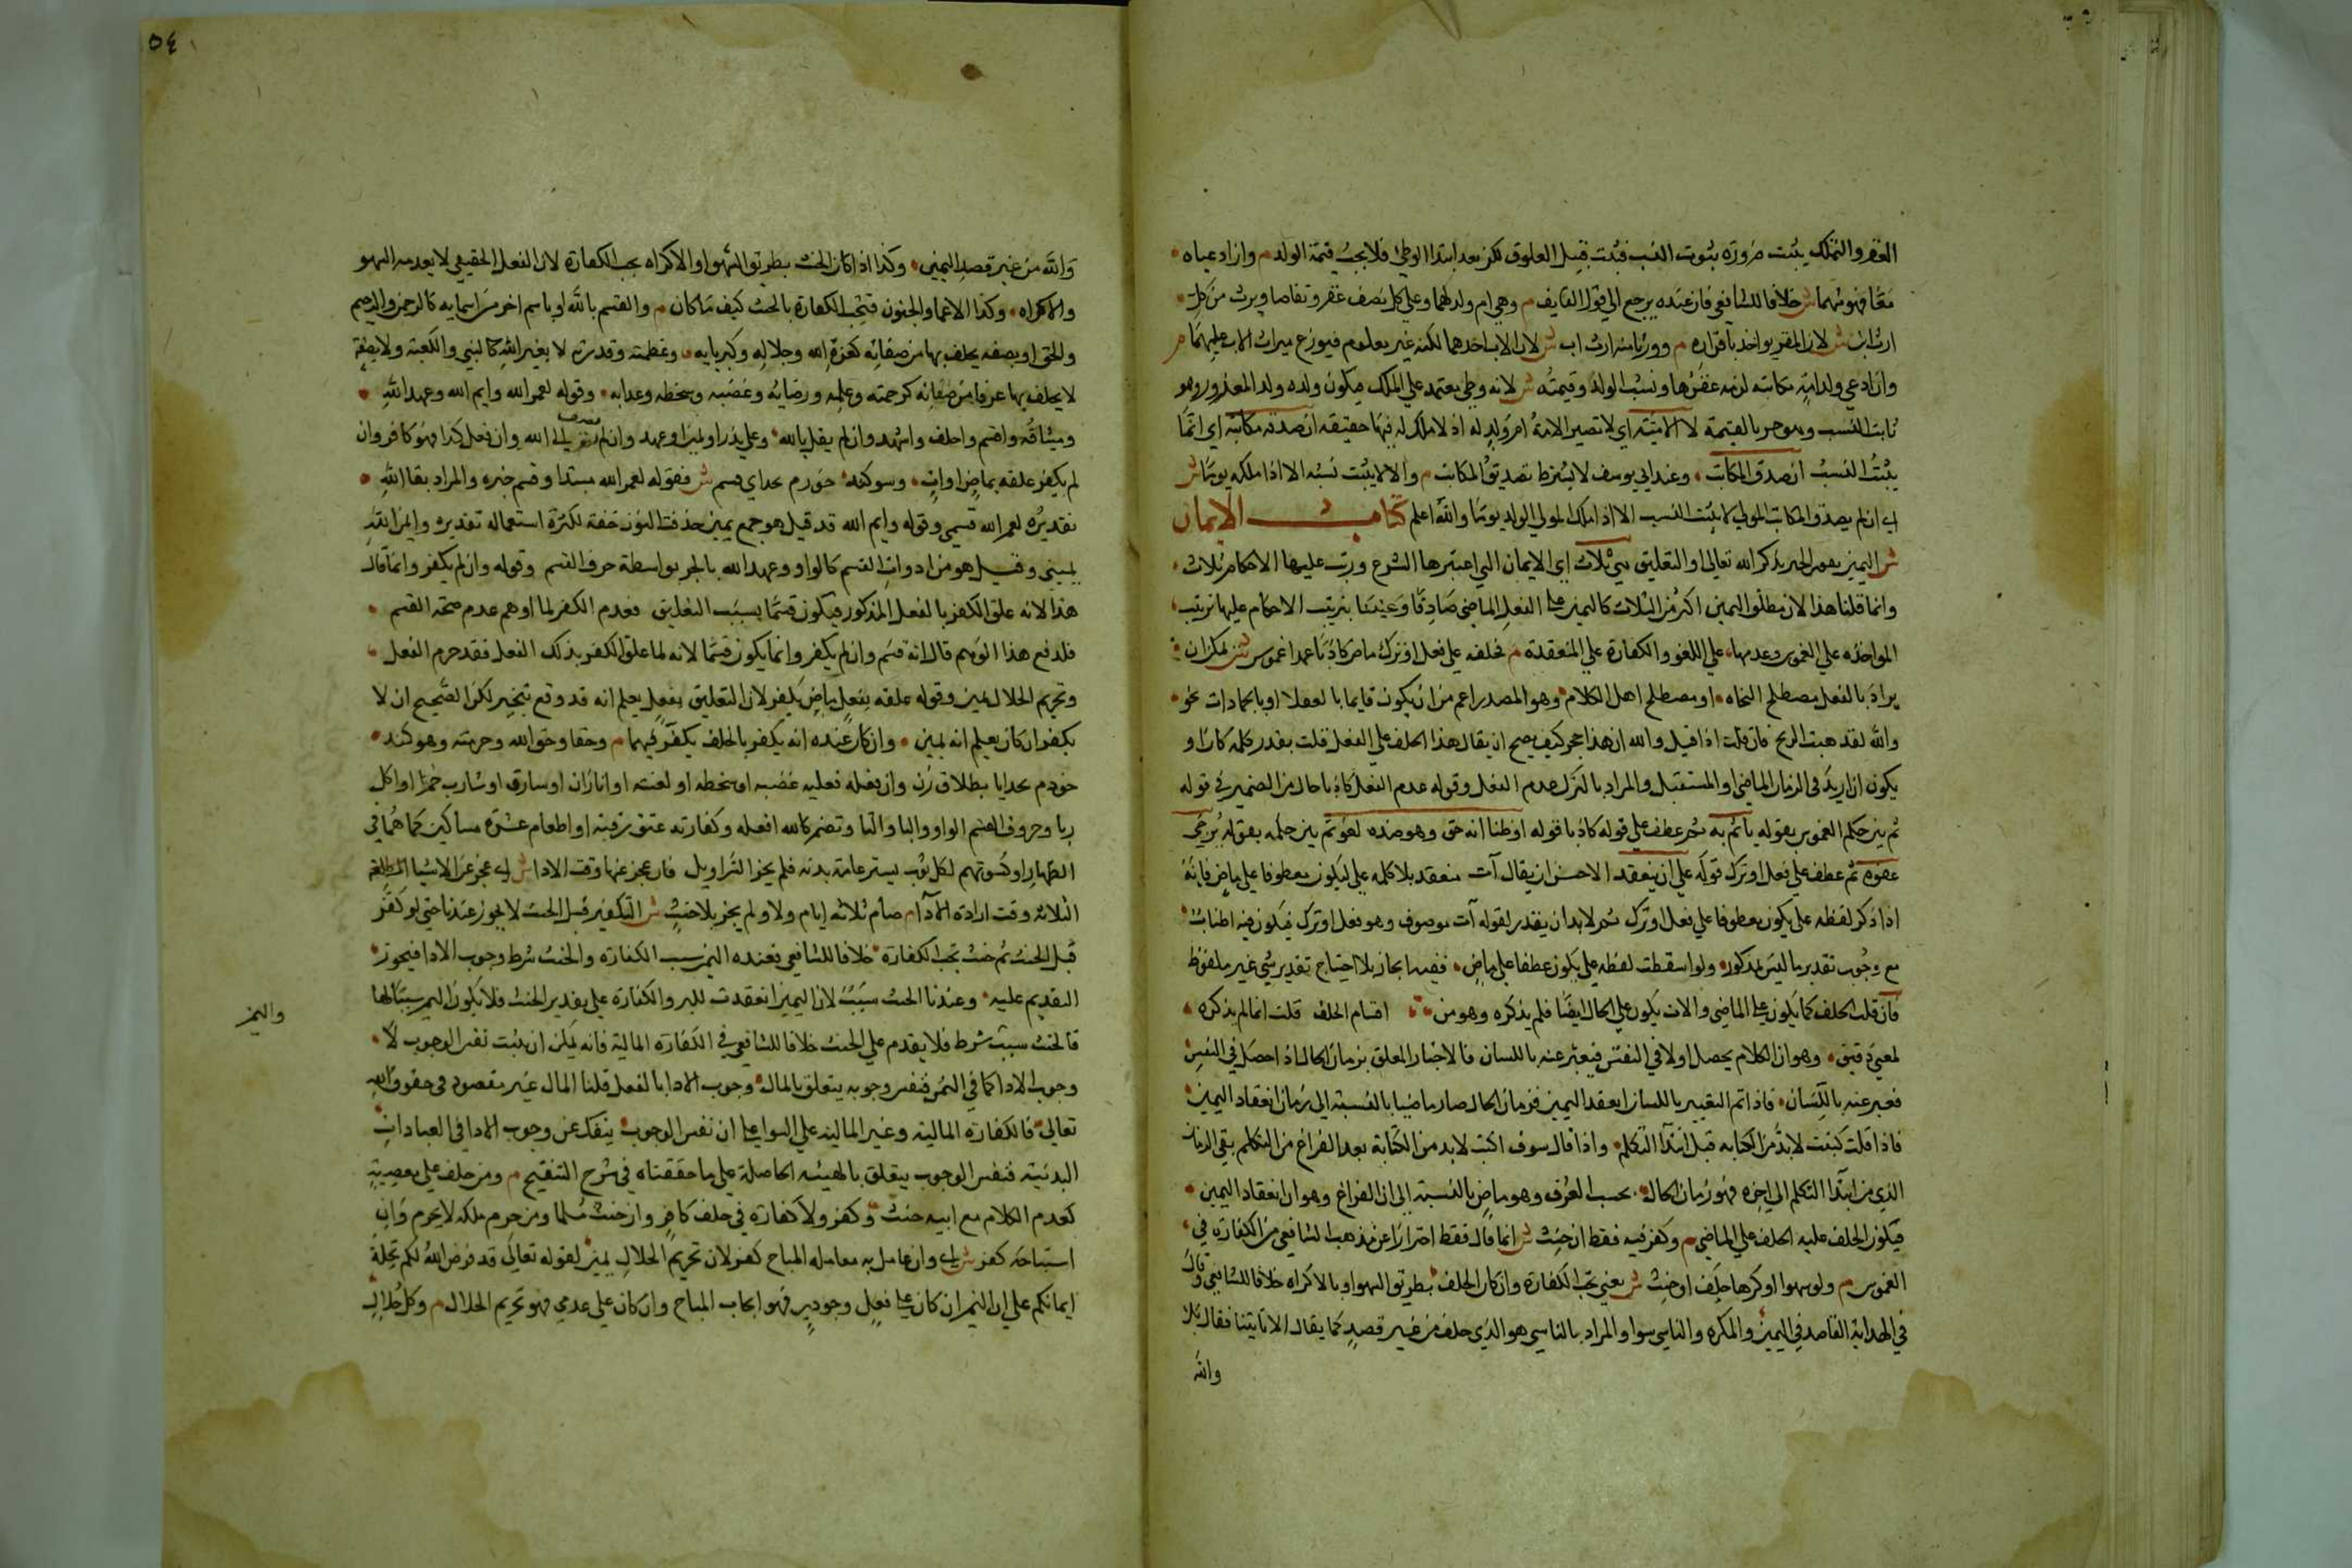 العقر والتملك يثبت ضرورة ثبوت النسب فيثبت قبيل العلوق لكن بعد ابتداء الوطئ فلا يجب قيمة الولد م وان ادعياه
معًا فهو منهما ش خلافا للشافعي فان عنده يرجع الي قول القايف م وهي ام ولد لهما وعلي كل نصف عقر وتقاصا ويرث من كل
ارث ابن ش لان المقر يواخذ باقراره م وورثا منه ارث اب ش لان الاب احدهما لكنه غير معلوم فيوزع ميراث الاب عليهما م
وان ادعي ولد امة مكاتبه لزمه عقرها ونسب الولد وقيمته ش لانه وطي معتمد علي الملك فيكون ولده ولد المغرور وهو
ثابت النسب وهو حر بالقيمة لا الامية اي لا تصير الامة ام ولد له اذ لا ملك له فيها حقيقة ان صدقه مكاتبه اي انما
يثبت النسب ان صدق المكاتب وعند ابي يوسف لا يشترط تصديق المكاتب م والا لا يثبت نسبه الا اذا ملكه يوما ش
اي ان لم يصدق المكاتب المولي لا يثبت النسب الا اذا ملك المولي الولد يوما والله اعلم كتاب الايمان
ش اليمين يقوي الخبر بذكر الله تعالي او التعليق هي ثلاث اي الايمان التي اعتبرها الشرع ورتب عليها الاحكام ثلاث
وانما قلنا هذا لان مطلق اليمين اكثر من الثلاث كاليمين علي الفعل الماضي صادقا وعنينا بترتيب الاحكام عليها ترتيب
المواخذه علي الغموس وعدمها علي اللغو والكفارة علي المنعقدة م فحلفه علي فعل او ترك ماض كاذبا عمدا غموس ش يمكن ان
يراد بالفعل مصطلح النحاه او مصطلح اهل الكلام وهو المصدر اعم من ان يكون قايما بالعقلا او بالجمادات نحو
والله لقد هبت الريح فان قلت اذا قيل والله ان هذا حجر كيف يصح ان يقال هذا الحلف علي الفعل قلت يقدر كلمه كان او
يكون ان اريد في الزمان الماضي او المستقبل والمراد بالترك عدم الفعل وقوله عدم الفعل كاذبا حال من الضمير في قوله
ثم بين حكم الغموس بقوله ياثم به ثم عطف علي قوله كاذبا قوله او ظنا انه حق وهو ضده لغو ثم بين حكمه بقوله يرجي
عفوه ثم عطف علي فعل او ترك قوله علي آت منعقد الاحسن ان يقال آت منعقد بلا كلمه علي ليكون معطوفا علي ماض فانه
اذا ذكر لفظه علي يكون معطوفا علي فعل او ترك ثم لا بد ان يقدر لقوله آت موصوف وهو فعل او ترك فيكون فيه اطناب
مع وجوب تقدير ما ليس بمذكور ولو اسقطت لفظه علي يكون عطفا علي ماض ففيه ايجاز بلا احتياج تقدير شي غير ملفوظ
فان قلت الحلف كما يكون علي الماضي والات يكون علي الحال ايضا فلم يذكره وهو من اقسام الحلف قلت انما لم يذكره
لمعني دقيق وهو ان الكلام يحصل اولا في النفس فيعبر عنه باللسان فالاخبار المعلق بزمان الحال اذا حصل في النفس
فعبر عنه باللسان فاذا تم التعبير باللسان انعقد اليمين فزمان الحال صار ماضيا بالنسبة الي زمان انعقاد اليمين
فاذا قلت كتبت لا بد من الكتابه قبل ابتدا التكلم واذا قال سوف اكتب لا بد من الكتابة بعد الفراغ من التكلم بقي الزمان
الذي من ابتدا التكلم الي اخره فهو زمان الحال بحسب العرف وهو ماض بالنسبة الي ان الفراغ وهو ان انعقاد اليمين
فيكون الحلف عليه الحلف علي الماضي م وكفر فيه فقط ان حنث ش انما قال فقط احترازا عن مذهب الشافعي من الكفارة في
الغموس م ولو سهوا او كرها حلف او حنث ش يعني تجب الكفارة وان كان الحلف بطريق السهو او بالاكراه خلافا للشافعي وقال
في الهداية القاصد في اليمين والمكره والناسي سوا والمراد بالناسي هو الذي حلف من غير قصد كما يقال الا تاتينا فقال بلا
والله
٥٤
والله من غير قصد اليمين وكذا اذا كان الحنث بطريق السهو او الاكراه يجب الكفارة لان الفعل الحقيقي لا يعدمه السهو
والاكراه وكذا الاغما والجنون فتجب الكفارة بالحنث كيف ما كان م والقسم بالله او باسم اخر من اسمايه كالرحمن والرحيم
والحق او بصفه يحلف بها من صفاته كعزة الله وجلاله وكبريايه وعظمته وقدرته لا بغير الله كالنبي والكعبة ولا بصفة
لا يحلف بها عرفا من صفاته كرحمته وعلمه ورضايه وغضبه وسخطه وعذابه وقوله لعمر الله وايم الله وعهد الله
وميثاقه واقسم واحلف واشهد وان لم يقل بالله وعلي نذر او يمين او عهد وان لم يضف الي الله وان فعل كذا فهو كافر وان
لم يكفر علقه بماض او ات وسوكند خورم بخداي قسم ش فقوله لعمر الله مبتدا وقسم خبره والمراد بقا الله
تقديره لعمر الله قسمي وقوله وايم الله قد قيل هو جمع يمين حذفت النون خفة لكثرة استعماله تقديره وايمن الله
يميني وقيل هو من ادوات القسم كالواو وعهد الله بالجر بواسطة حرف القسم وقوله وان لم يكفر وانما قال
هذا لانه علق الكفر بالفعل المذكور فيكون قسما بسبب التعليق فعدم الكفر لما اوهم عدم صحة القسم
فلدفع هذا الوهم قال انه قسم وان لم يكفر وانما يكون قسما لانه لما علق الكفر بذلك الفعل فقد حرم الفعل
وتحريم الحلال يمين وقوله علقه بفعل ماض يكفر لان التعليق بفعل يعلم انه قد وقع تنجيز لكن الصحيح ان لا
يكفر ان كان يعلم انه يمين وان كان عنده انه يكفر بالحلف يكفر فيهما م وحقا وحق الله وحرمته وهو كند
خورم بخدايا بطلاق زن وان فعله فعليه غضبه او سخطه او لعنته او انا زان او سارق او شارب خمر او اكل
ربا وحروف القسم الواو والبا والتا وتضمر كالله افعله وكفارته عتق رقبة او اطعام عشرة مساكين كما هما في
الظهار او كسوتهم لكل ثوب يستر عامة بدنه فلم يجز السراويل فان عجز عنها وقت الادا ش اي عجز عن الاشيا
الثلاثه وقت ارادة الادا م صام ثلاثة ايام ولا ولم يجز بلا حنث ش التكفير قبل الحنث لا يجوز عندنا حتي لو كفر
قبل الحنث ثم حنث تجب الكفارة خلافا للشافعي فعنده اليمين سبب الكفارة والحنث شرط وجوب الادا فيجوز
التقديم عليه وعندنا الحنث سبب لان اليمين انعقدت للبر والكفارة علي تقدير الحنث فلا يكون اليمين سببا لها
فالحنث سبب شرط فلا يقدم علي الحنث خلافا للشافعي في الكفارة المالية فانه يمكن ان يثبت نفس الوجوب لا
وجوب الادا كما في الثمن فنفس وجوبه يتعلق بالمال ووجوب الادا بالفعل قلنا المال غير مقصود في حقوق الله
تعالي فالكفارة المالية وغير المالية علي السوا علي ان نفس الوجوب ينفك عن وجوب الادا في العبادات
البدنية فنفس الوجوب يتعلق بالهيئه الحاصلة علي ما حققناه في شرح التنقيح م ومن حلف علي معصية
كعدم الكلام مع ابيه حنث وكفر ولا كفارة في حلف كافر وان حنث مسلما ومن حرم ملكه لا يحرم وان
استباحه كفر ش اي وان عامل به معامله المباح كفر لان تحريم الحلال يمين لقوله تعالي قد فرض الله لكم تحلة
ايمانكم علي ان اليمين ان كان علي فعل وجودي فهو ايجاب المباح وان كان علي عدمي فهو تحريم الحلال م وكل حلال
واليمين